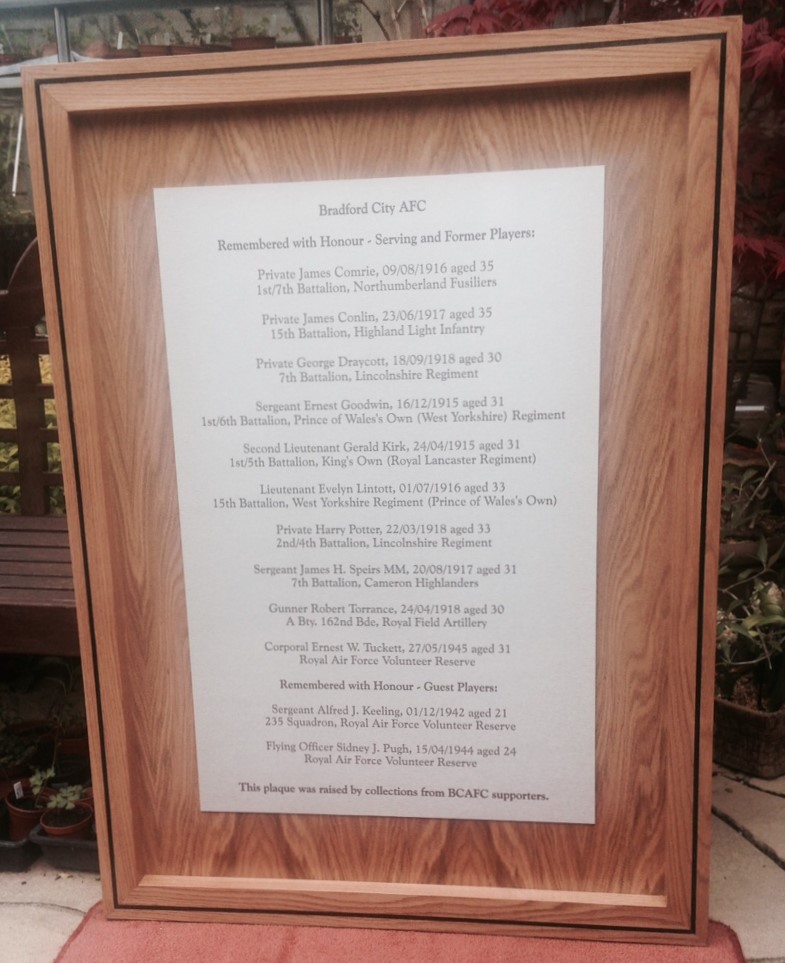 Bradford City AFC
Remembered with Honour - Serving and Former Players:
Private James Comrie, 09/08/1916 aged 35
1st/7th Battalion, Northumberland Fusiliers
Private James Conlin, 23/06/1917 aged 35
15th Battalion, Highland Light Infantry
Private George Draycott, 18/09/1918 aged 30
7th Battalion, Lincolnshire Regiment
Sergeant Ernest Goodwin, 16/12/1915 aged 31
1st/6th Battalion, Prince of Wales's Own (West Yorkshire) Regiment
Second Lieutenant Gerald Kirk, 24/04/1915 aged 31
1st/5th Battalion, King's Own (Royal Lancaster Regiment)
Lieutenant Evelyn Lintott, 01/07/1916 aged 33
15th Battalion, West Yorkshire Regiment (Prince of Wales's Own)
Private Harry Potter, 22/03/1918 aged 33
2nd/4th Battalion, Lincolnshire Regiment
Sergeant James H. Speirs MM, 20/08/1917 aged 31
7th Battalion, Cameron Highlanders
Gunner Robert Torrance, 24/04/1918 aged 30
A Bty. 162nd Bde, Royal Field Artillery
Corporal Ernest W. Tuckett, 27/05/1945 aged 31
Royal Air Force Volunteer Reserve
Remembered with Honour - Guest Players:
Sergeant Alfred J. Keeling, 01/12/1942 aged 21
235 Squadron, Royal Air Force Volunteer Reserve
Flying Officer Sidney J. Pugh, 15/04/1944 aged 24
Royal Air Force Volunteer Reserve
This plaque was raised by collections from BCAFC supporters.